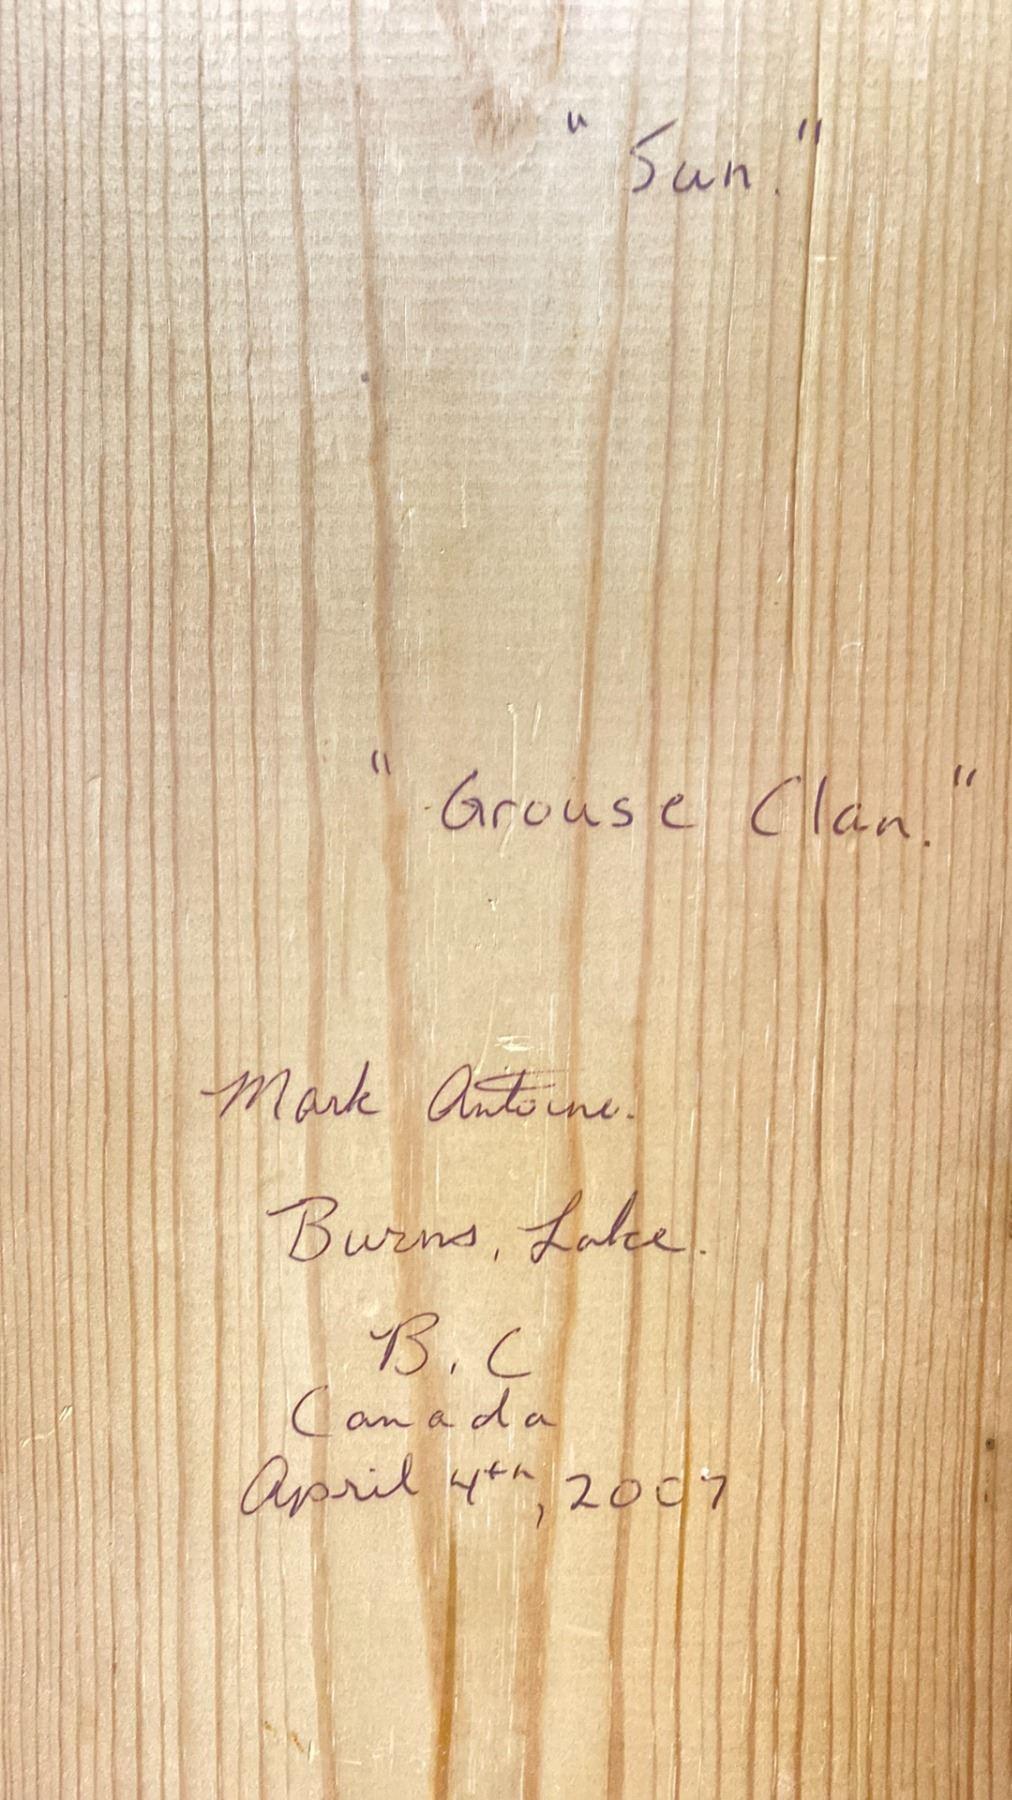 "Sun."
"Grouse Clan."
Mark Antoine.
Burns, Lake.
B.C
Canada
April 4th, 2007